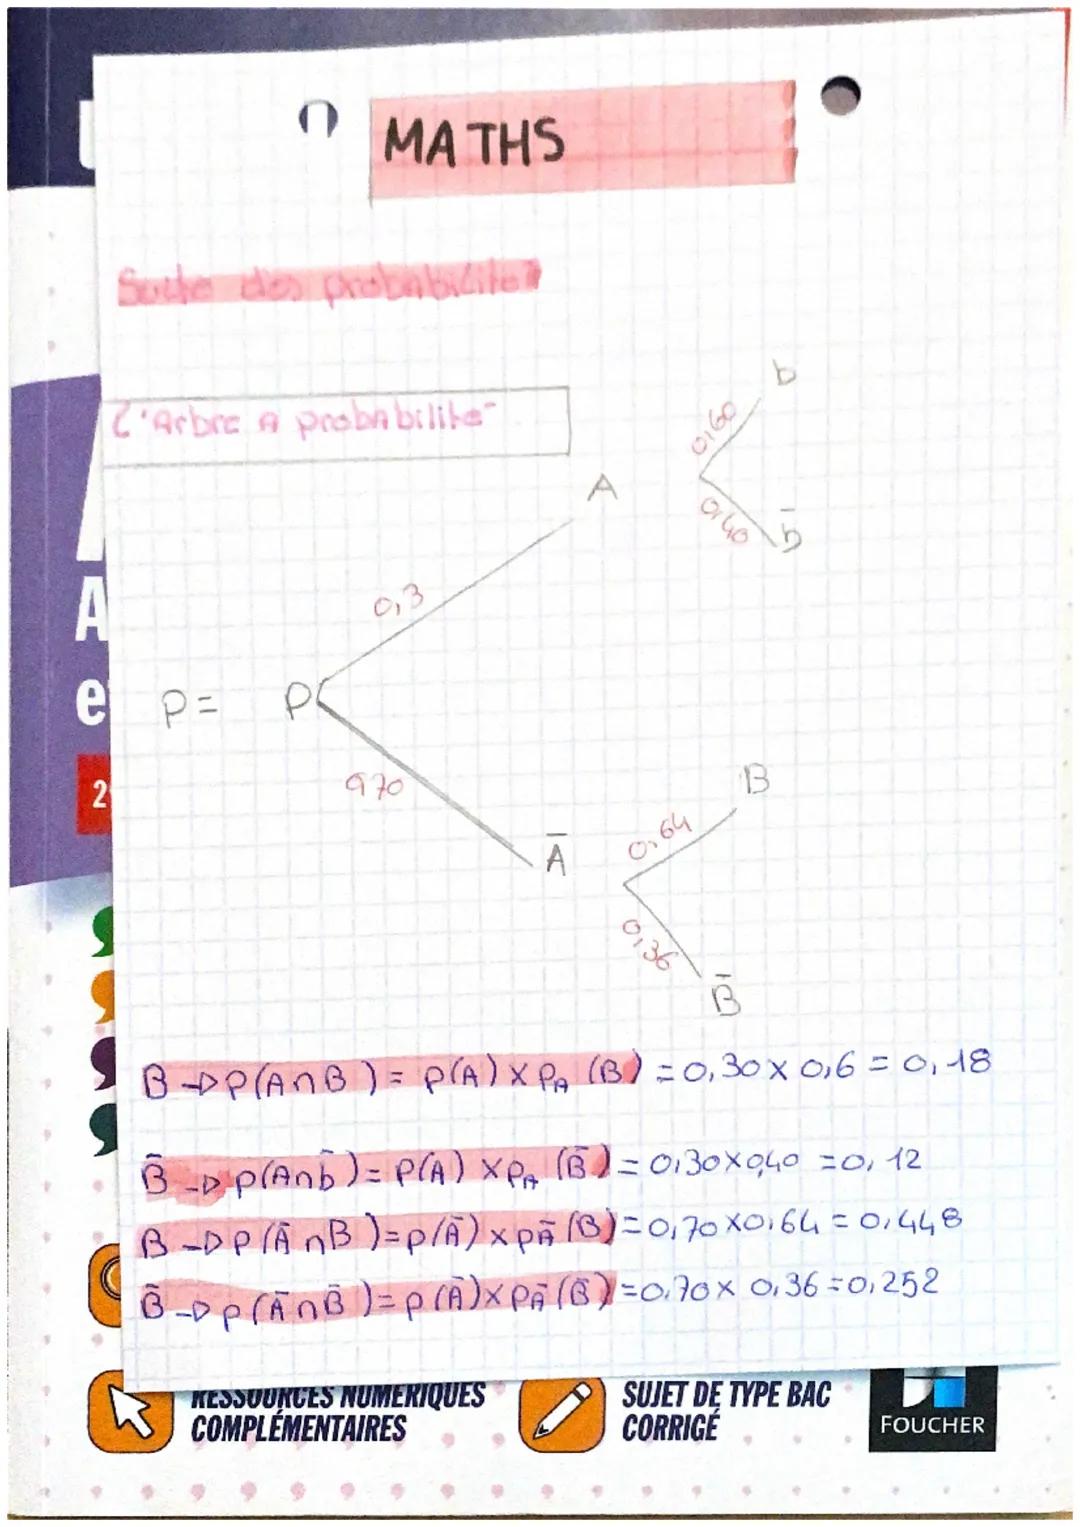 MATHS
Suite des probabilités
L'Arbre A probabilite
b
0,60
A
0,40
b̄
0,3
P= P
0,70
B
0,64
Ā
0,36
B̄
B → P(A∩B) = P(A) × P_A (B) = 0,30 × 0,6 = 0,18
B̄ → P(A∩b̄) = P(A) × P_A (B̄) = 0,30×0,40 = 0,12
B → P(Ā∩B) = P(Ā) × P_Ā (B) = 0,70×0,64 = 0,448
B̄ → P(Ā∩B̄) = P(Ā)×P_Ā (B̄) = 0,70× 0,36 = 0,252
A
e
2
RESSOURCES NUMÉRIQUES
COMPLÉMENTAIRES
SUJET DE TYPE BAC
CORRIGÉ
FOUCHER